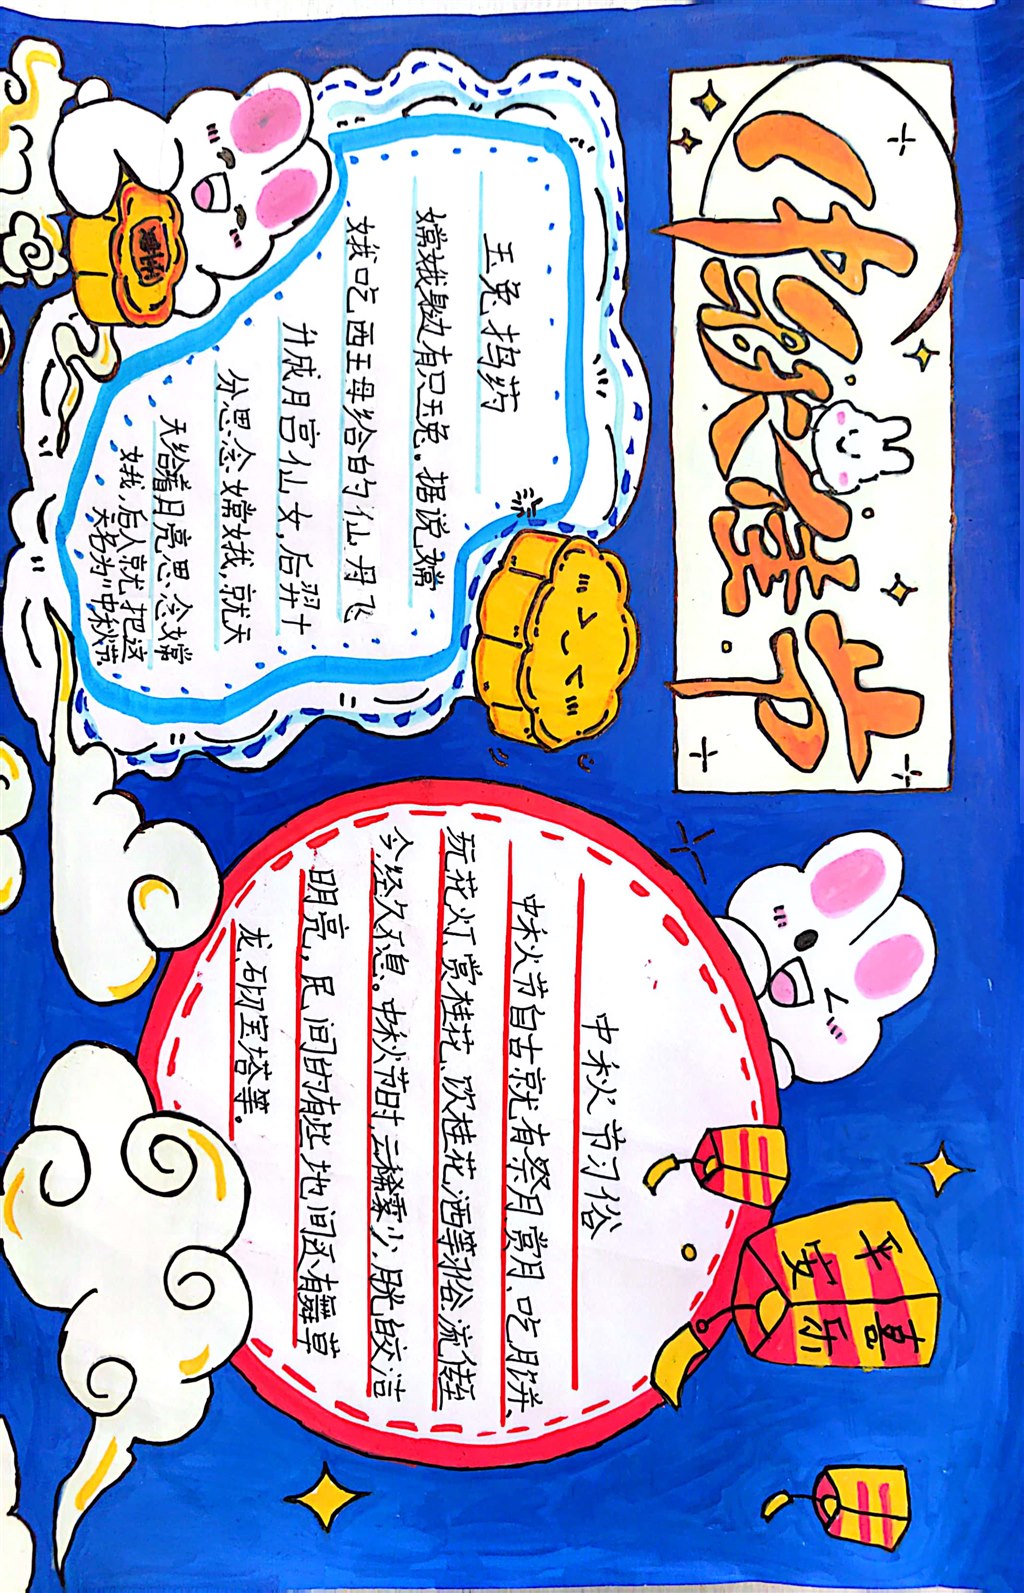 中秋佳节
玉兔捣药
嫦娥身边有只玉兔。据说嫦
娥吃西王母给的仙丹飞
升成月宫仙女,后羿十
分思念嫦娥,就天
天给着月亮思念嫦
娥,后人就把这
天名为"中秋节
中秋节习俗
中秋节自古就有祭月、赏月、吃月饼、
玩花灯、赏桂花、饮桂花酒等俗,流传至
今,经久不息。中秋节时,云稀雾少,月光皎洁
明亮,民间的有些地间还有舞草
龙,砌宝塔等。
平安
喜乐